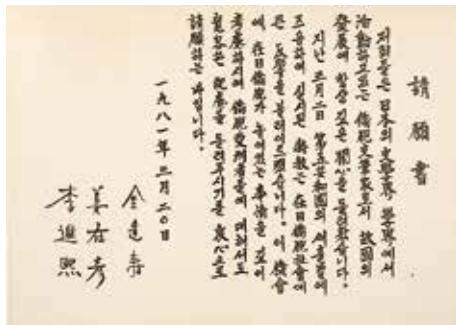 請願書
저희들은 日本의 文學界 學界에서
治動하고 있는 僑胞文筆家로서 故國의
發展에 항상 깊은 關心을 돌려왔습니다.
지난 三月三日 第五共和國의 새출발에
즈음하여 실시된 赦는 在日僑胞社會에
큰 을 불러일으켰습니다. 이 機會
에 在日僑胞가 놓여있는 事情을 깊이
考慮하시어 僑胞受刑者들에 대하여도
寬容한 을 돌려주시기를 衷心으로
請願하는 바입니다.
一九八一年 三月 二〇日
金達壽
姜在彦
李進熙